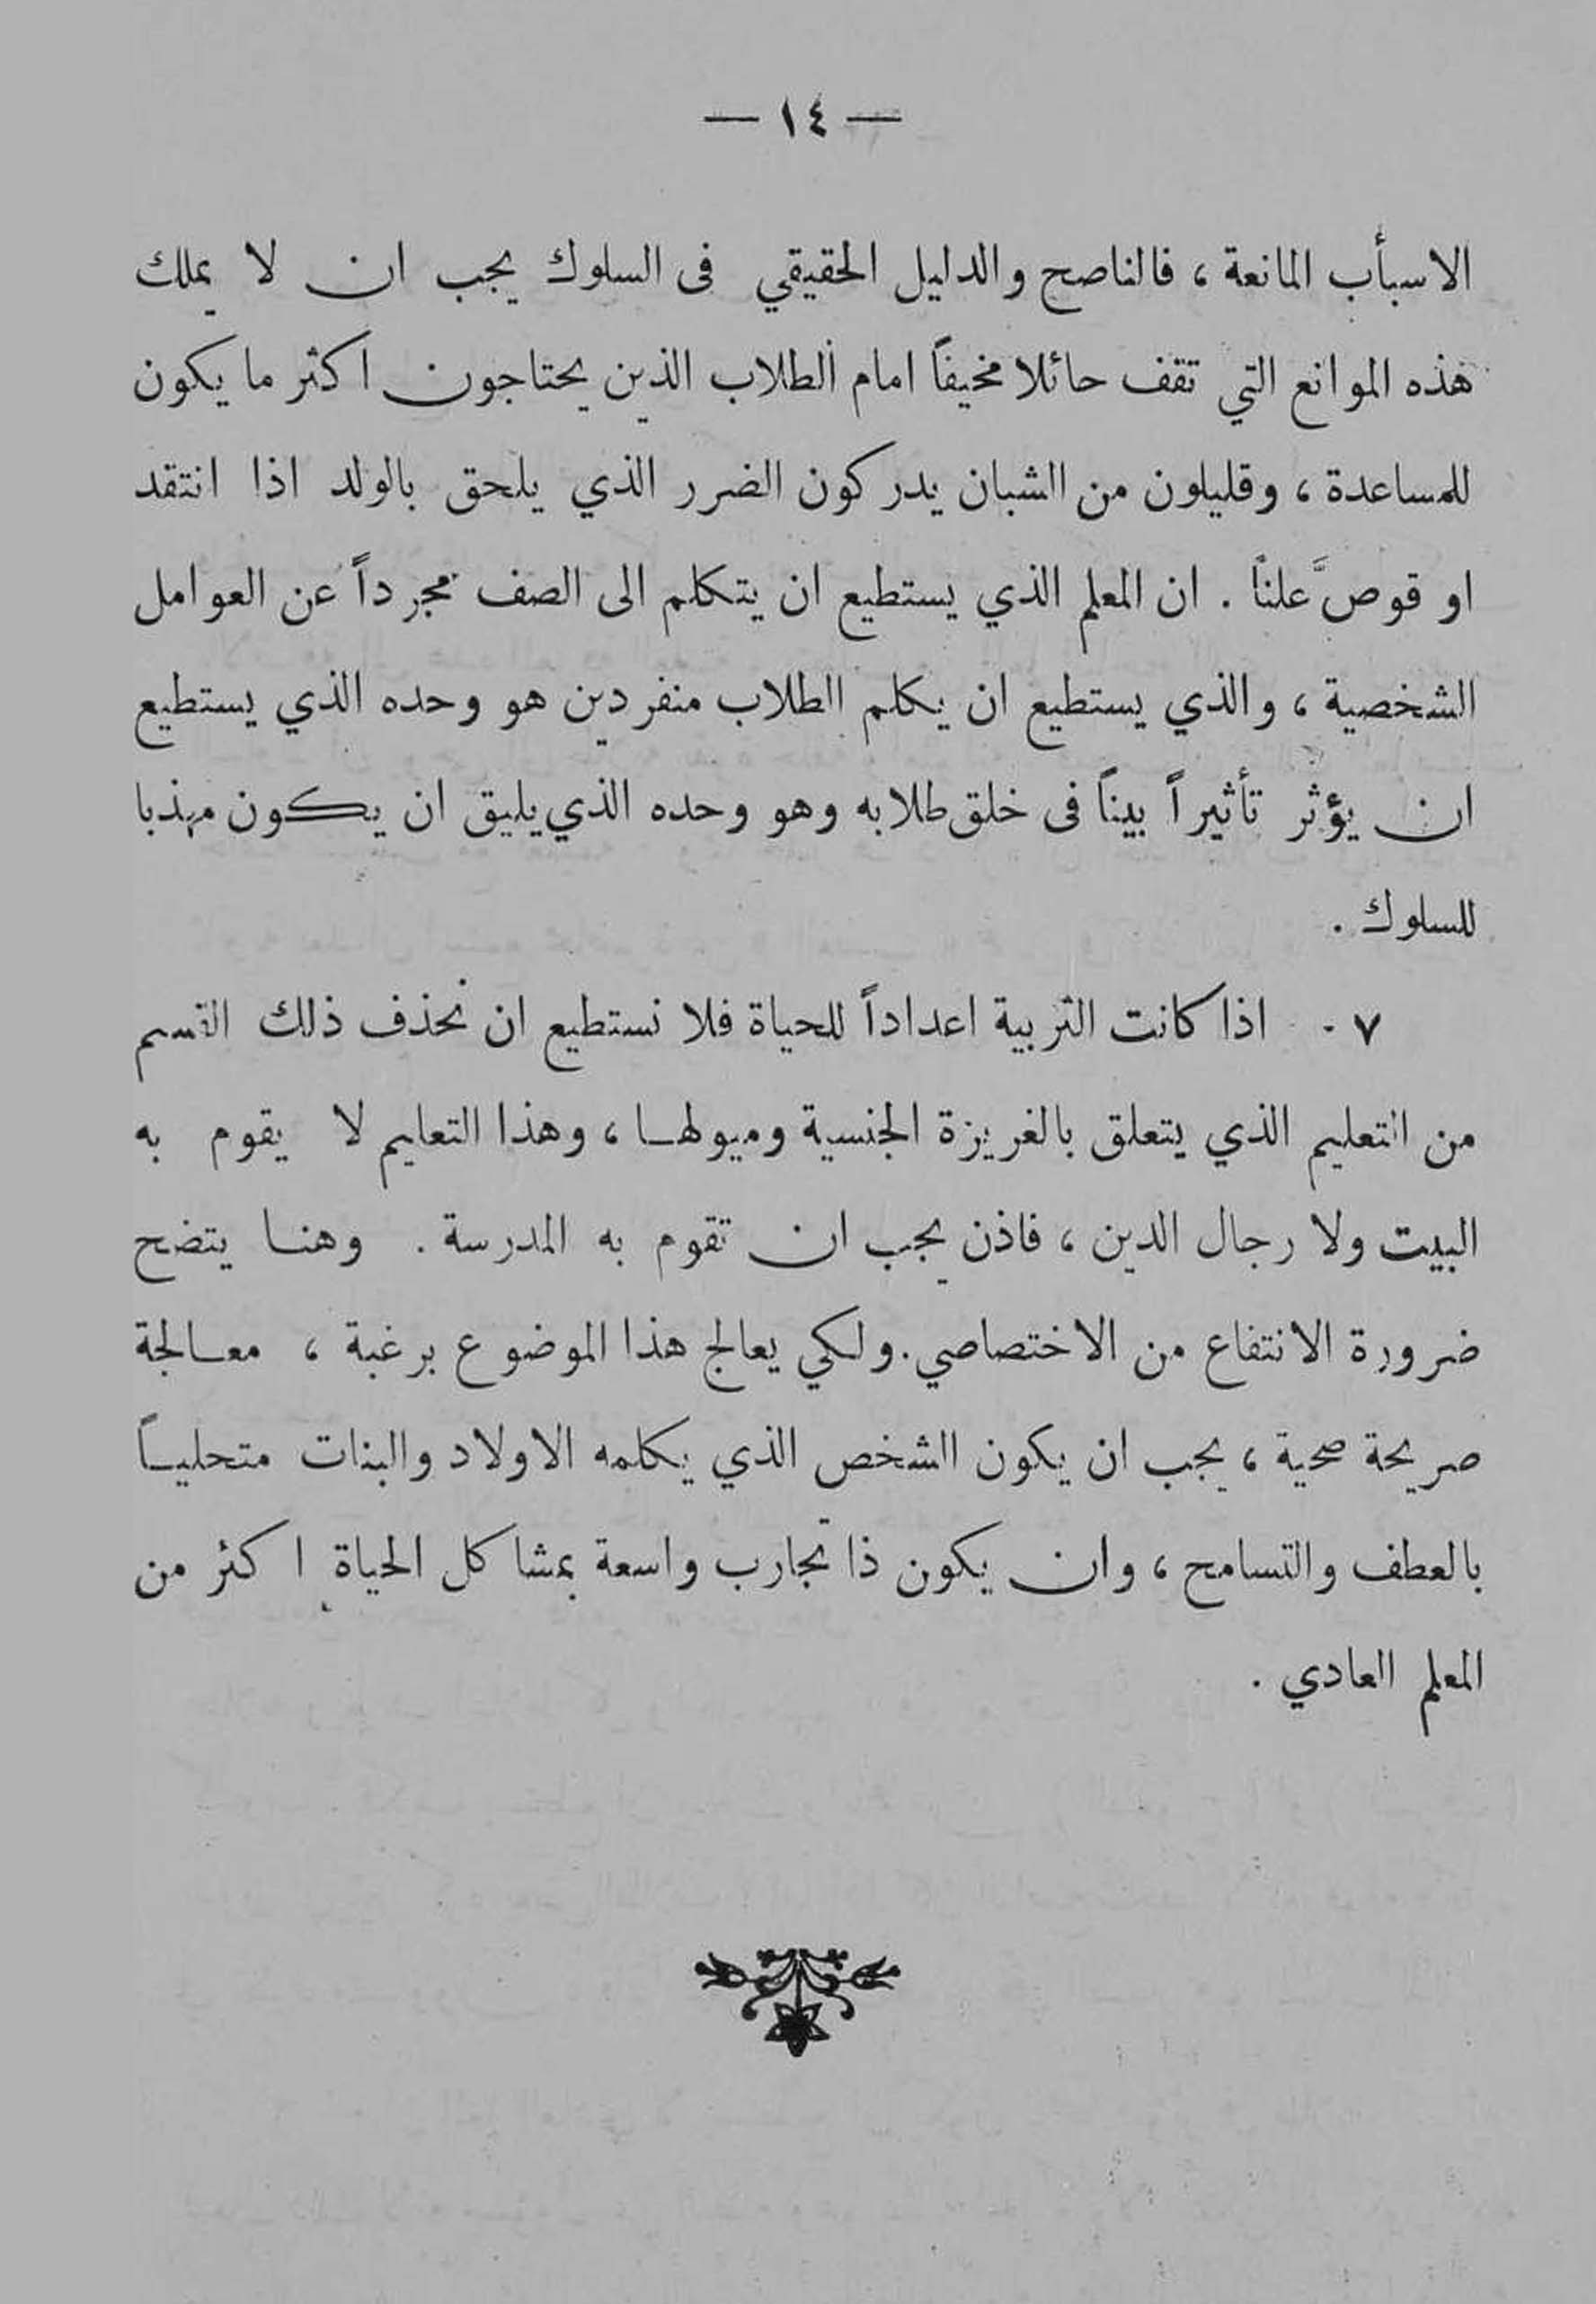 — ١٤ —
الاسبأب المانعة ، فالناصح والدليل الحقيقي فى السلوك يجب ان لا يملك
هذه الموانع التي تقف حائلا مخيفاً امام الطلاب الذين يحتاجون اكثر ما يكون
للمساعدة ، وقليلون من الشبان يدركون الضرر الذي يلحق بالولد اذا انتقد
او قوصَّ علناً . ان المعلم الذي يستطيع ان يتكلم الى الصف مجرداً عن العوامل
الشخصية ، والذي يستطيع ان يكلم الطلاب منفردين هو وحده الذي يستطيع
ان يؤثر تأثيراً بيناً فى خلق طلابه وهو وحده الذي يليق ان يكون مهذبا
للسلوك .
٧ . اذا كانت التربية اعداداً للحياة فلا نستطيع ان نحذف ذلك القسم
من التعليم الذي يتعلق بالغريزة الجنسية وميولها ، وهذا التعليم لا يقوم به
البيت ولا رجال الدين ، فاذن يجب ان تقوم به المدرسة . وهنا يتضح
ضرورة الانتفاع من الاختصاصي . ولكي يعالج هذا الموضوع برغبة ، معالجة
صريحة صحية ، يجب ان يكون الشخص الذي يكلمه الاولاد والبنات متحلياً
بالعطف والتسامح ، وان يكون ذا تجارب واسعة بمشاكل الحياة اكثر من
المعلم العادي .